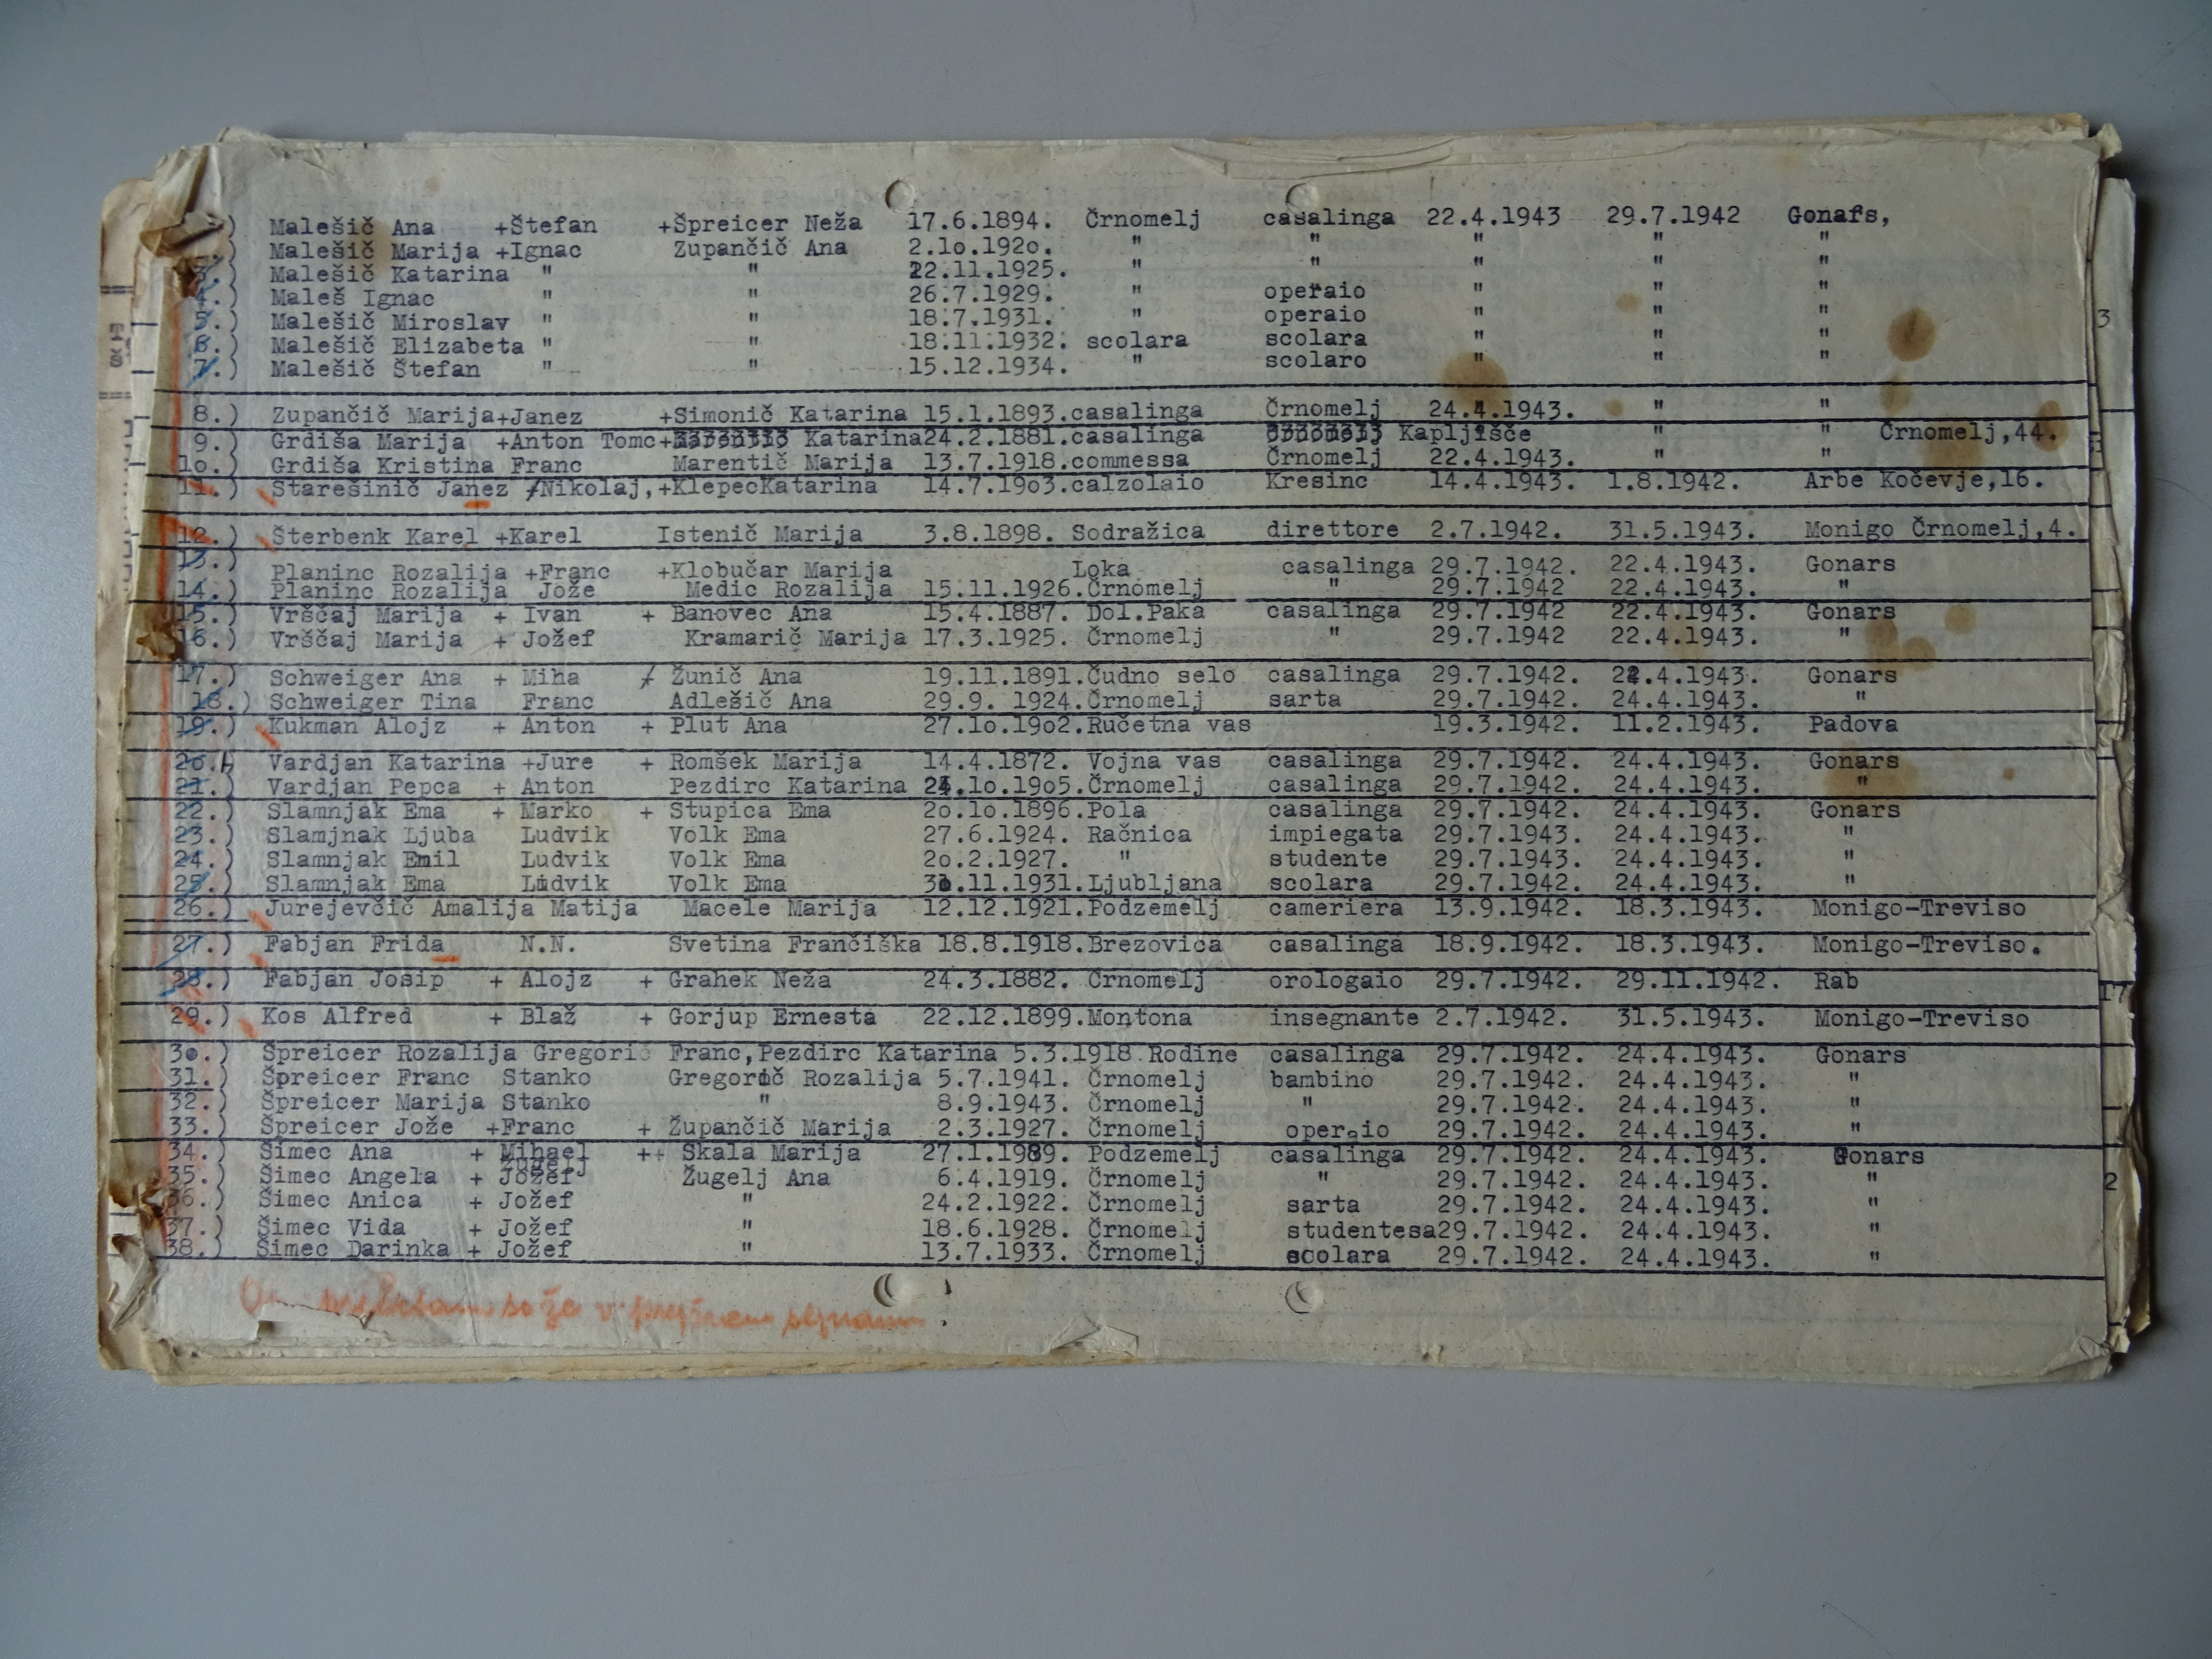 ) Malešič Ana +Štefan +Špreicer Neža 17.6.1894. Črnomelj casalinga 22.4.1943 29.7.1942 Gonars,
.) Malešič Marija +Ignac Zupančič Ana 2.1o.192o. " " " " "
3.) Malešič Katarina " " 22.11.1925. " " " " "
4.) Maleš Ignac " " 26.7.1929. " operaio " " "
5.) Malešič Miroslav " " 18.7.1931. " operaio " " "
6.) Malešič Elizabeta " " 18.11.1932. scolara scolara " " "
7.) Malešič Štefan " " 15.12.1934. " scolaro " " "
8.) Zupančič Marija+Janez +Simonič Katarina 15.1.1893.casalinga Črnomelj 24.4.1943. " "
9.) Grdiša Marija +Anton Tomc+ Katarina24.2.1881.casalinga Kapljišče " " Črnomelj,44.
1o.) Grdiša Kristina Franc Marentič Marija 13.7.1918.commessa Črnomelj 22.4.1943. " "
11.) Starešinič Janez +Nikolaj,+KlepecKatarina 14.7.19o3.calzolaio Kresinc 14.4.1943. 1.8.1942. Arbe Kočevje,16.
12.) Šterbenk Karel +Karel Istenič Marija 3.8.1898. Sodražica direttore 2.7.1942. 31.5.1943. Monigo Črnomelj,4.
13.) Planinc Rozalija +Franc +Klobučar Marija Loka casalinga 29.7.1942. 22.4.1943. Gonars
14.) Planinc Rozalija Jože Medic Rozalija 15.11.1926.Črnomelj " 29.7.1942 22.4.1943. "
15.) Vrščaj Marija + Ivan + Banovec Ana 15.4.1887. Dol.Paka casalinga 29.7.1942 22.4.1943. Gonars
16.) Vrščaj Marija + Jožef Kramarič Marija 17.3.1925. Črnomelj " 29.7.1942 22.4.1943. "
17.) Schweiger Ana + Miha + Žunič Ana 19.11.1891.Čudno selo casalinga 29.7.1942. 22.4.1943. Gonars
18.) Schweiger Tina Franc Adlešič Ana 29.9. 1924.Črnomelj sarta 29.7.1942. 24.4.1943. "
19.) Kukman Alojz + Anton + Plut Ana 27.1o.19o2.Ručetna vas 19.3.1942. 11.2.1943. Padova
2o.) Vardjan Katarina +Jure + Romšek Marija 14.4.1872. Vojna vas casalinga 29.7.1942. 24.4.1943. Gonars
21.) Vardjan Pepca + Anton Pezdirc Katarina 24.1o.19o5.Črnomelj casalinga 29.7.1942. 24.4.1943. "
22.) Slamnjak Ema + Marko + Stupica Ema 2o.1o.1896.Pola casalinga 29.7.1942. 24.4.1943. Gonars
23.) Slamjnak Ljuba Ludvik Volk Ema 27.6.1924. Račnica impiegata 29.7.1943. 24.4.1943. "
24.) Slamnjak Emil Ludvik Volk Ema 2o.2.1927. " studente 29.7.1943. 24.4.1943. "
25.) Slamnjak Ema Ludvik Volk Ema 3o.11.1931.Ljubljana scolara 29.7.1942. 24.4.1943. "
26.) Jurejevčič Amalija Matija Macele Marija 12.12.1921.Podzemelj cameriera 13.9.1942. 18.3.1943. Monigo-Treviso
27.) Fabjan Frida N.N. Svetina Frančiška 18.8.1918.Brezovica casalinga 18.9.1942. 18.3.1943. Monigo-Treviso.
28.) Fabjan Josip + Alojz + Grahek Neža 24.3.1882. Črnomelj orologaio 29.7.1942. 29.11.1942. Rab
29.) Kos Alfred + Blaž + Gorjup Ernesta 22.12.1899.Montona insegnante 2.7.1942. 31.5.1943. Monigo-Treviso
3o.) Špreicer Rozalija Gregorič Franc,Pezdirc Katarina 5.3.1918 Rodine casalinga 29.7.1942. 24.4.1943. Gonars
31.) Špreicer Franc Stanko Gregorič Rozalija 5.7.1941. Črnomelj bambino 29.7.1942. 24.4.1943. "
32.) Špreicer Marija Stanko " 8.9.1943. Črnomelj " 29.7.1942. 24.4.1943. "
33.) Špreicer Jože +Franc + Župančič Marija 2.3.1927. Črnomelj operaio 29.7.1942. 24.4.1943. "
34.) Šimec Ana + Mihael Žugelj ++ Skala Marija 27.1.1989. Podzemelj casalinga 29.7.1942. 24.4.1943. Gonars
35.) Šimec Angela + Jožef Žugelj Ana 6.4.1919. Črnomelj " 29.7.1942. 24.4.1943. "
36.) Šimec Anica + Jožef " 24.2.1922. Črnomelj sarta 29.7.1942. 24.4.1943. "
37.) Šimec Vida + Jožef " 18.6.1928. Črnomelj studentesa29.7.1942. 24.4.1943. "
38.) Šimec Darinka + Jožef " 13.7.1933. Črnomelj scolara 29.7.1942. 24.4.1943. "
so že v
3
17
2